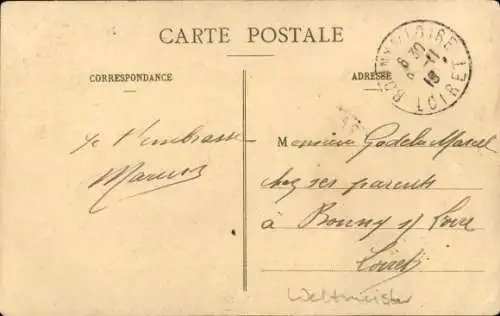 CARTE POSTALE
CORRESPONDANCE
ADRESSE
BONNY S LOIRE
8 30
LOIRET
Je t'embrasse
Monsieur Marcel
chez ses parents
à Bonny s/ Loire
Loiret
Weltmeister